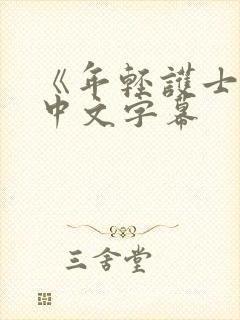 《年輕護士
中文字幕
三舍堂